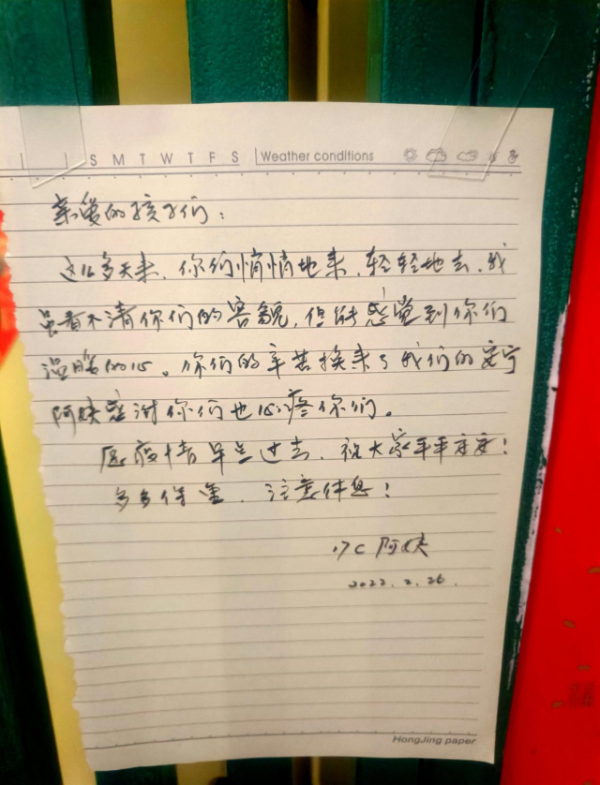 S M T W T F S Weather conditions
亲爱的孩子们：
这么多天来，你们悄悄地来，轻轻地去，我
虽看不清你们的容貌，但能感觉到你们
温暖的心。你们的辛苦换来了我们的安宁
阿姨感谢你们也心疼你们。
愿疫情早点过去，祝大家平平安安！
多多保重，注意休息！
17C 阿姨
2022.2.26.
HongJing paper